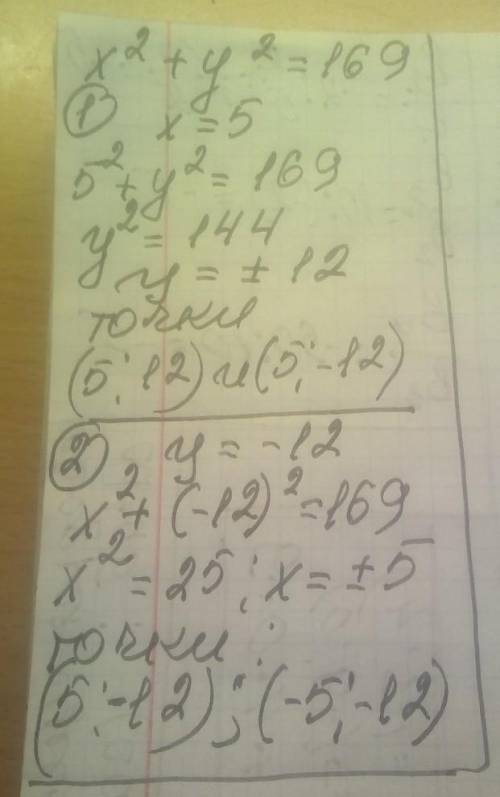 x² + y² = 169
① x = 5
5² + y² = 169
y² = 144
y = ± 12
точки
(5; 12) и (5; -12)
② y = -12
x² + (-12)² = 169
x² = 25; x = ±5
точки:
(5; -12); (-5; -12)